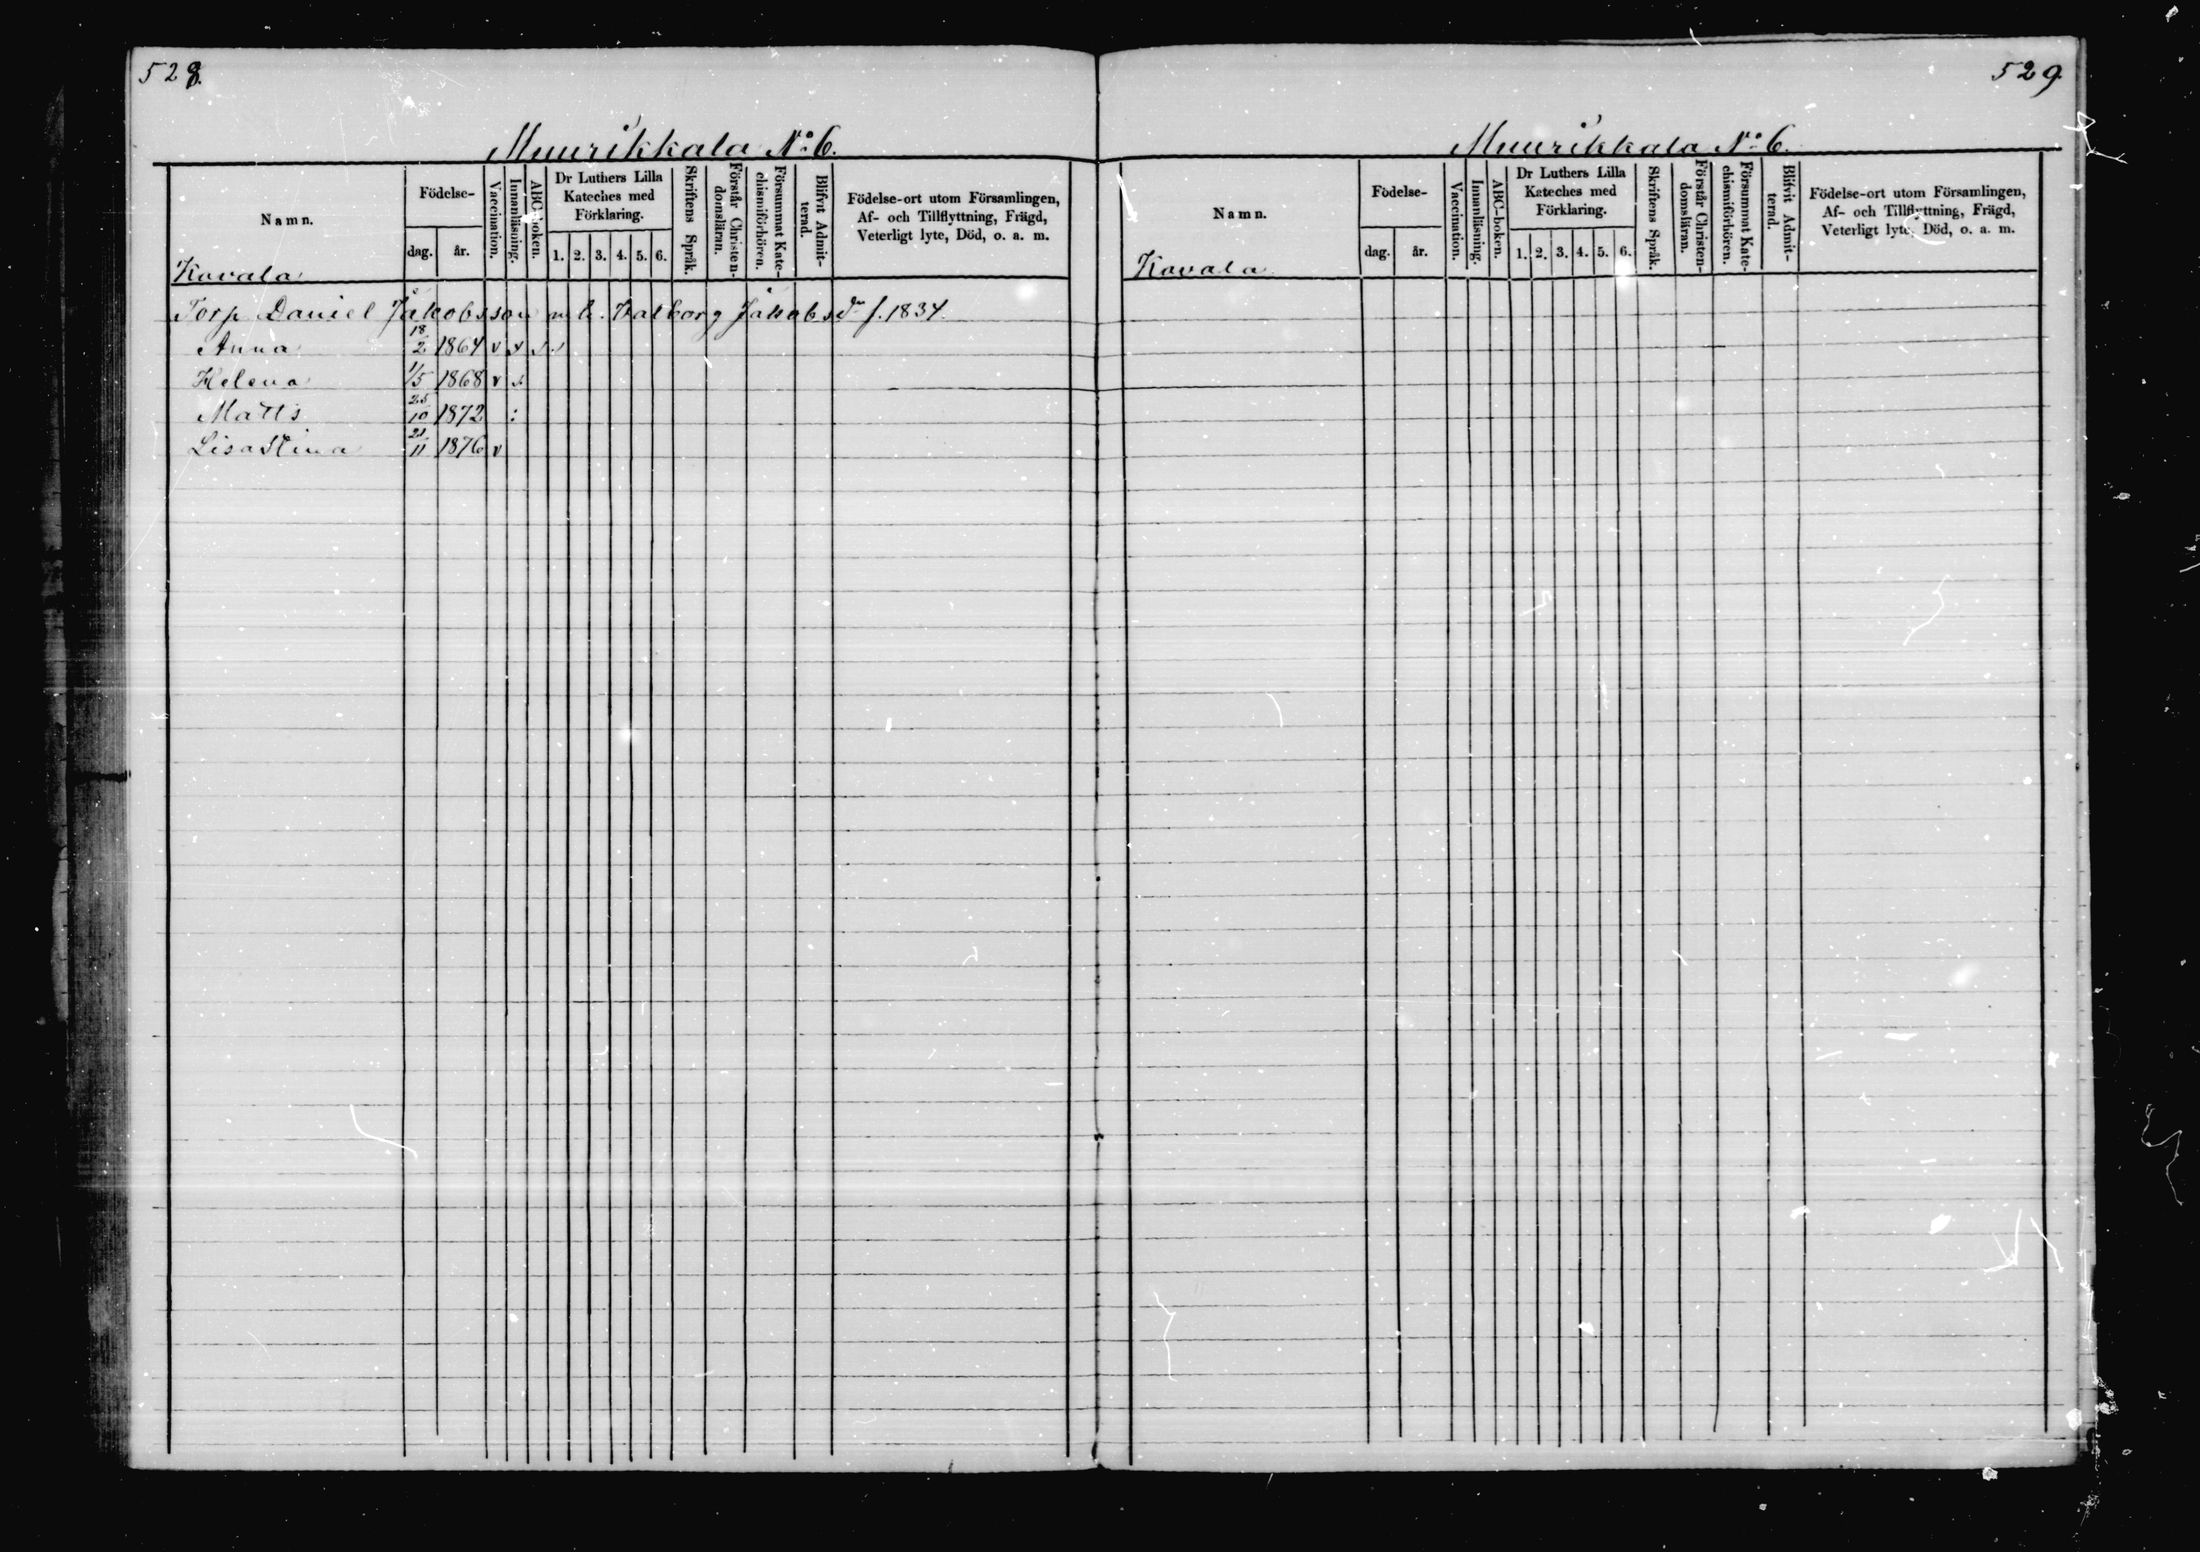 528.
Muurikkala No 6.
Namn.
Födelse-
dag.
år.
Vaccination.
Innanläsning.
ABC-boken.
Dr Luthers Lilla
Kateches med
Förklaring.
1. 2. 3. 4. 5. 6.
Skriftens Språk.
Förstår Christen-
domsläran.
Försummat Kate-
chismiförhören.
Blifvit Admit-
terad.
Födelse-ort utom Församlingen,
Af- och Tillflyttning, Frägd,
Veterligt lyte, Död, o. a. m.
Kavala
Torp Daniel Jakobsson m. h. Valborg Jakobsdr f. 1834.
Anna 18/2 1864 v
Helena 1/5 1868 v
Matts 25/10 1872 :
Lisa Stina 21/11 1876 v
529.
Muurikkala No 6.
Namn.
Födelse-
dag.
år.
Vaccination.
Innanläsning.
ABC-boken.
Dr Luthers Lilla
Kateches med
Förklaring.
1. 2. 3. 4. 5. 6.
Skriftens Språk.
Förstår Christen-
domsläran.
Försummat Kate-
chismiförhören.
Blifvit Admit-
terad.
Födelse-ort utom Församlingen,
Af- och Tillflyttning, Frägd,
Veterligt lyte, Död, o. a. m.
Kavala